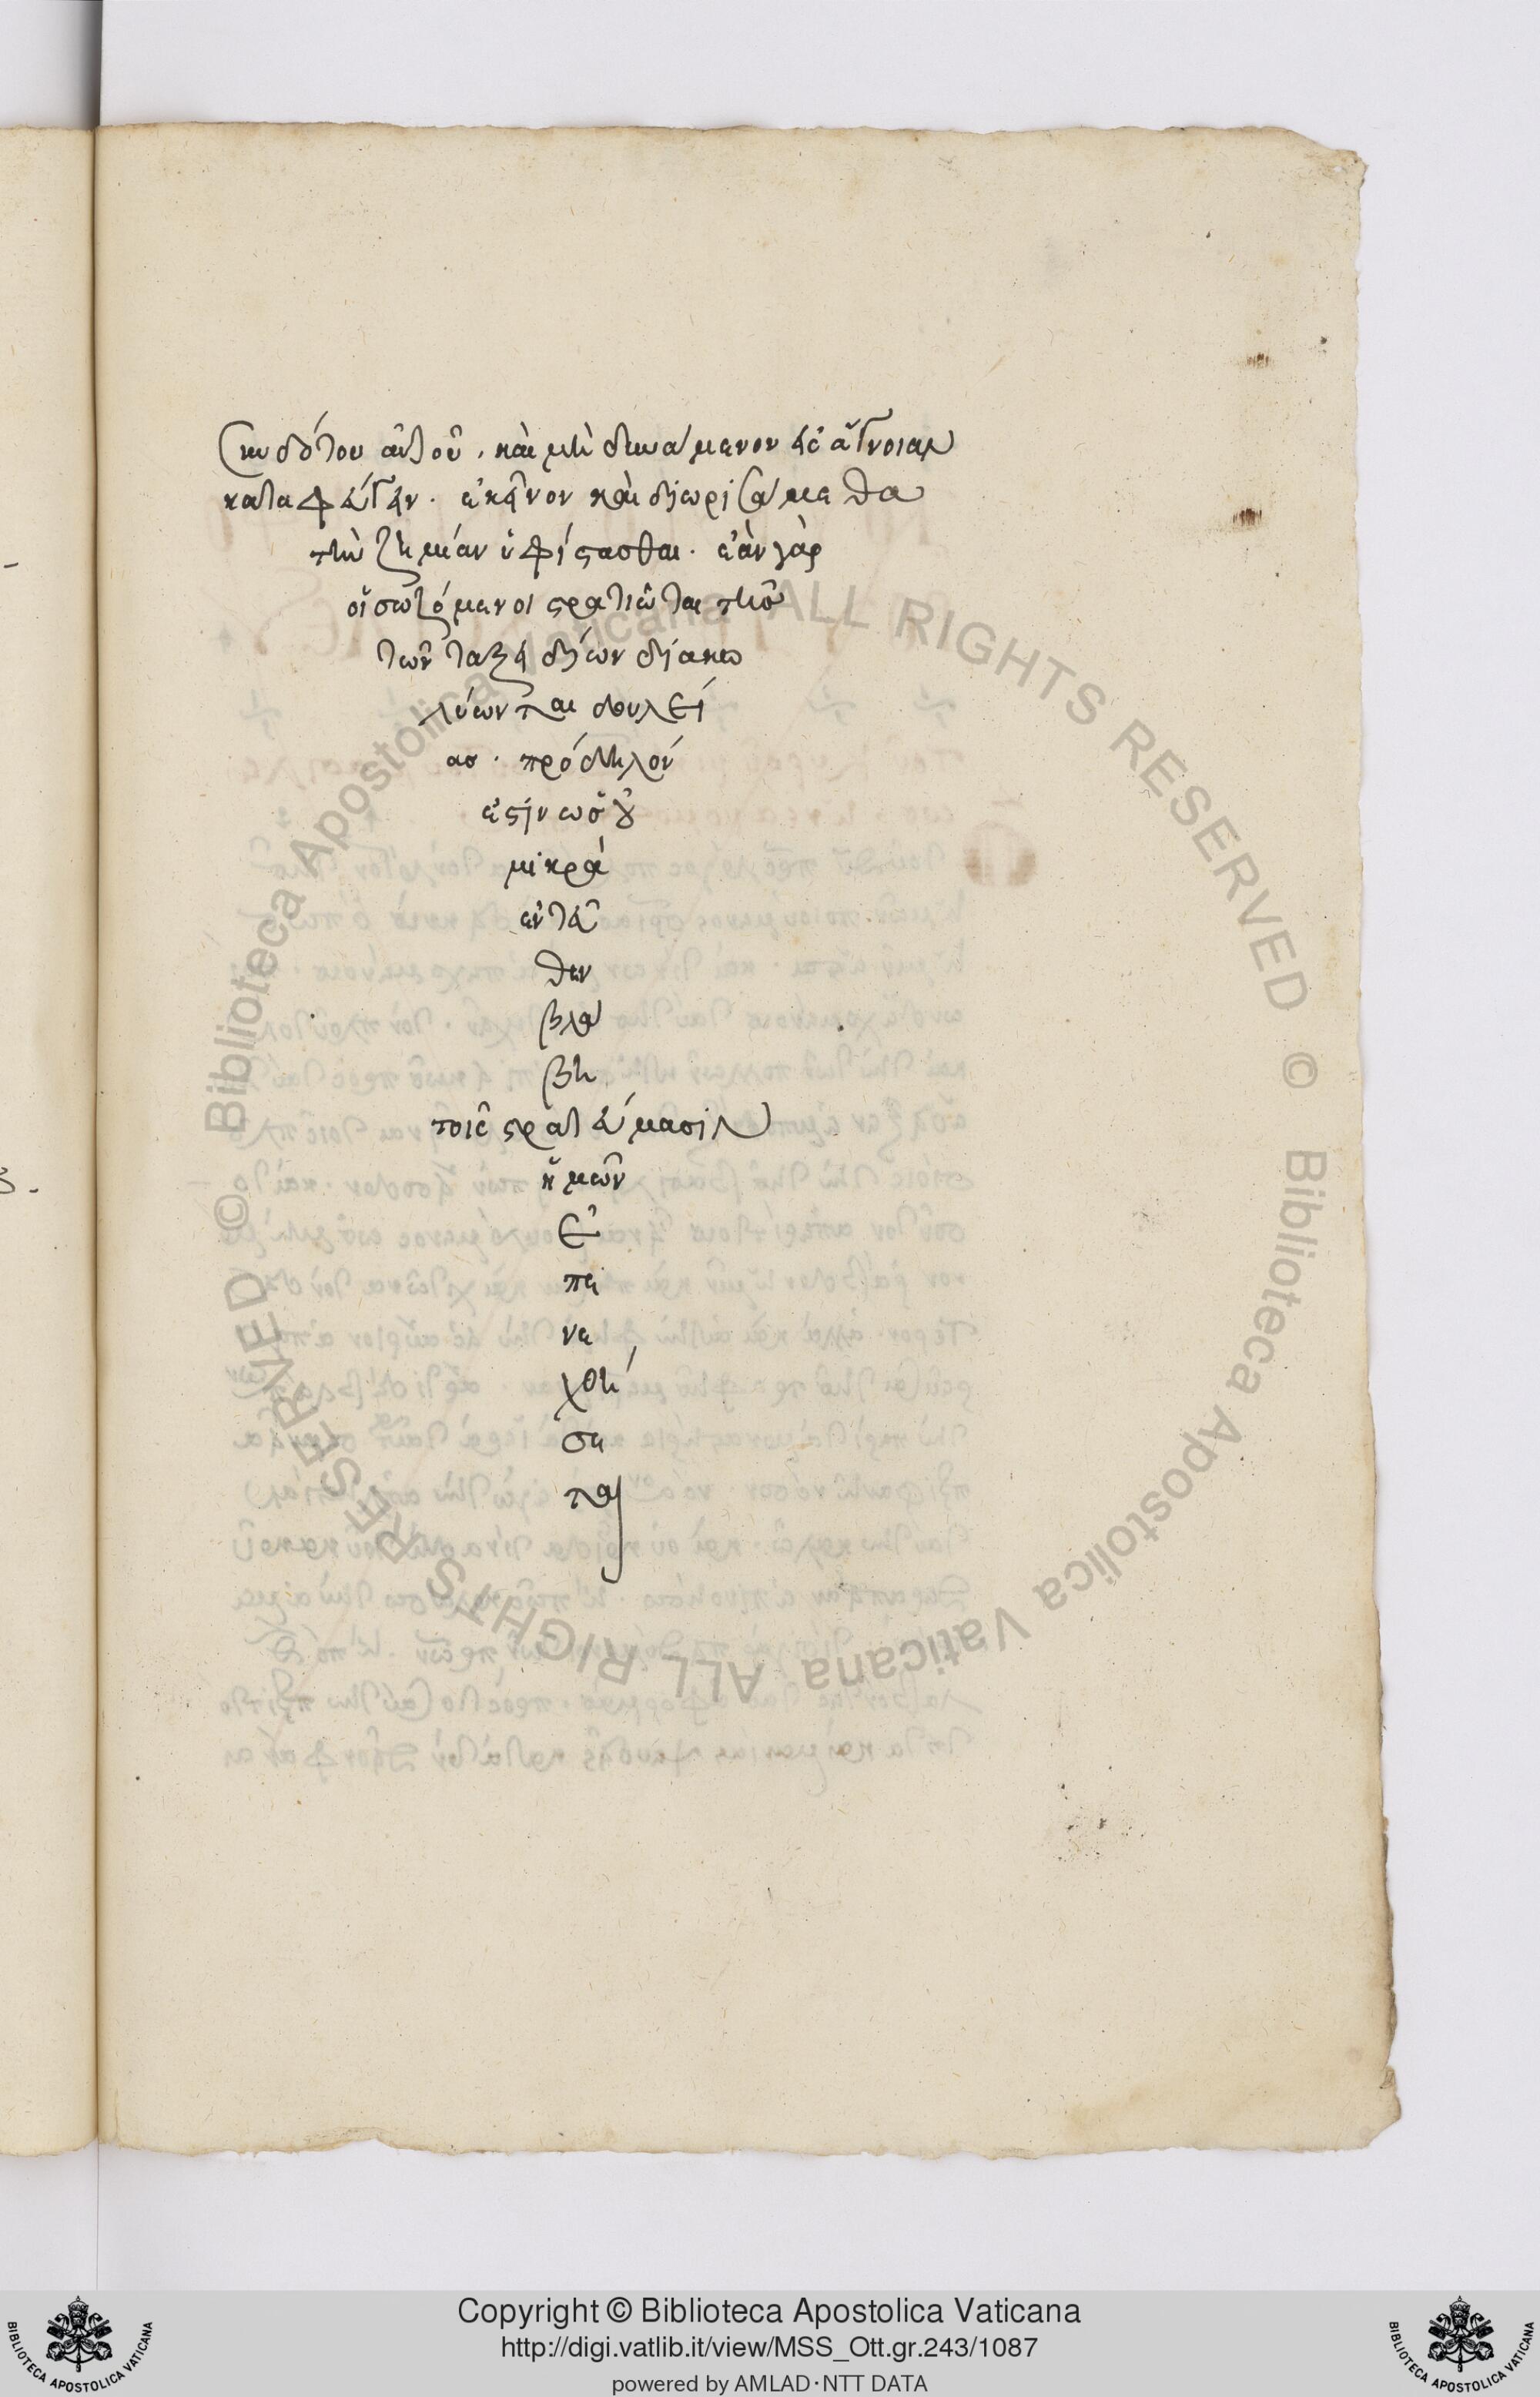 συνδότου αὐτοῦ, καὶ μὴ δυνάμενον εἰς ἄγνοιαν
καταφεύγειν. ἐκεῖνον καὶ διωρισάμεθα
τὴν ζημίαν ὑφίστασθαι. ἐὰν γὰρ
οἱ σωζόμενοι στρατιῶται τῆς
τῶν ταξειδίων διακω
λύωνται δουλεί
ας. πρόδηλόν
ἐστιν ὡς οὐ
μικρὰ
ἐντεῦ
θεν
βλά
βη
τοῖς στρατεύμασιν
ἡμῶν
ἐ
πε
νε
χθή
σε
ται
Biblioteca Apostolica Vaticana ALL RIGHTS RESERVED ©
Biblioteca Apostolica Vaticana ALL RIGHTS RESERVED ©
Copyright © Biblioteca Apostolica Vaticana
http://digi.vatlib.it/view/MSS_Ott.gr.243/1087
powered by AMLAD·NTT DATA
BIBLIOTECA APOSTOLICA VATICANA
BIBLIOTECA APOSTOLICA VATICANA